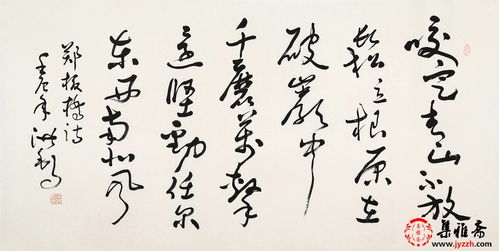 咬定青山不放
鬆立根原在
破巖中
千磨萬擊
還堅勁任尔
东西南北风
郑板橋诗
壬辰年
集雅斋
www.jyzzh.com